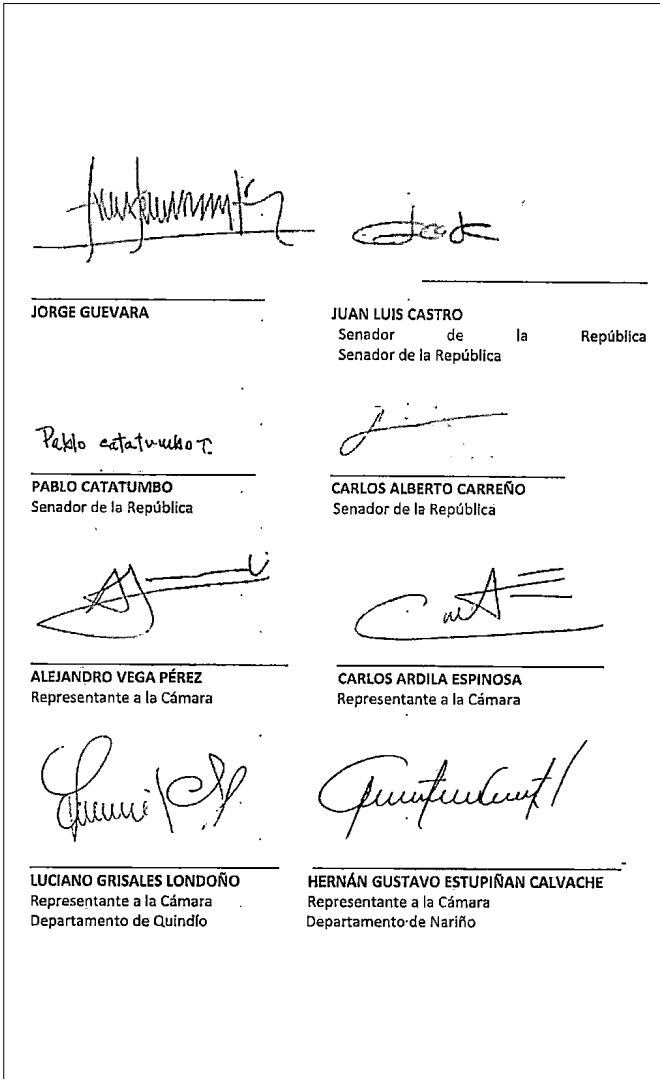 JORGE GUEVARA
JUAN LUIS CASTRO
Senador de la República
Senador de la República
Pablo catatumbo T.
PABLO CATATUMBO
Senador de la República
CARLOS ALBERTO CARREÑO
Senador de la República
ALEJANDRO VEGA PÉREZ
Representante a la Cámara
CARLOS ARDILA ESPINOSA
Representante a la Cámara
LUCIANO GRISALES LONDOÑO
Representante a la Cámara
Departamento de Quindío
HERNÁN GUSTAVO ESTUPIÑAN CALVACHE
Representante a la Cámara
Departamento de Nariño